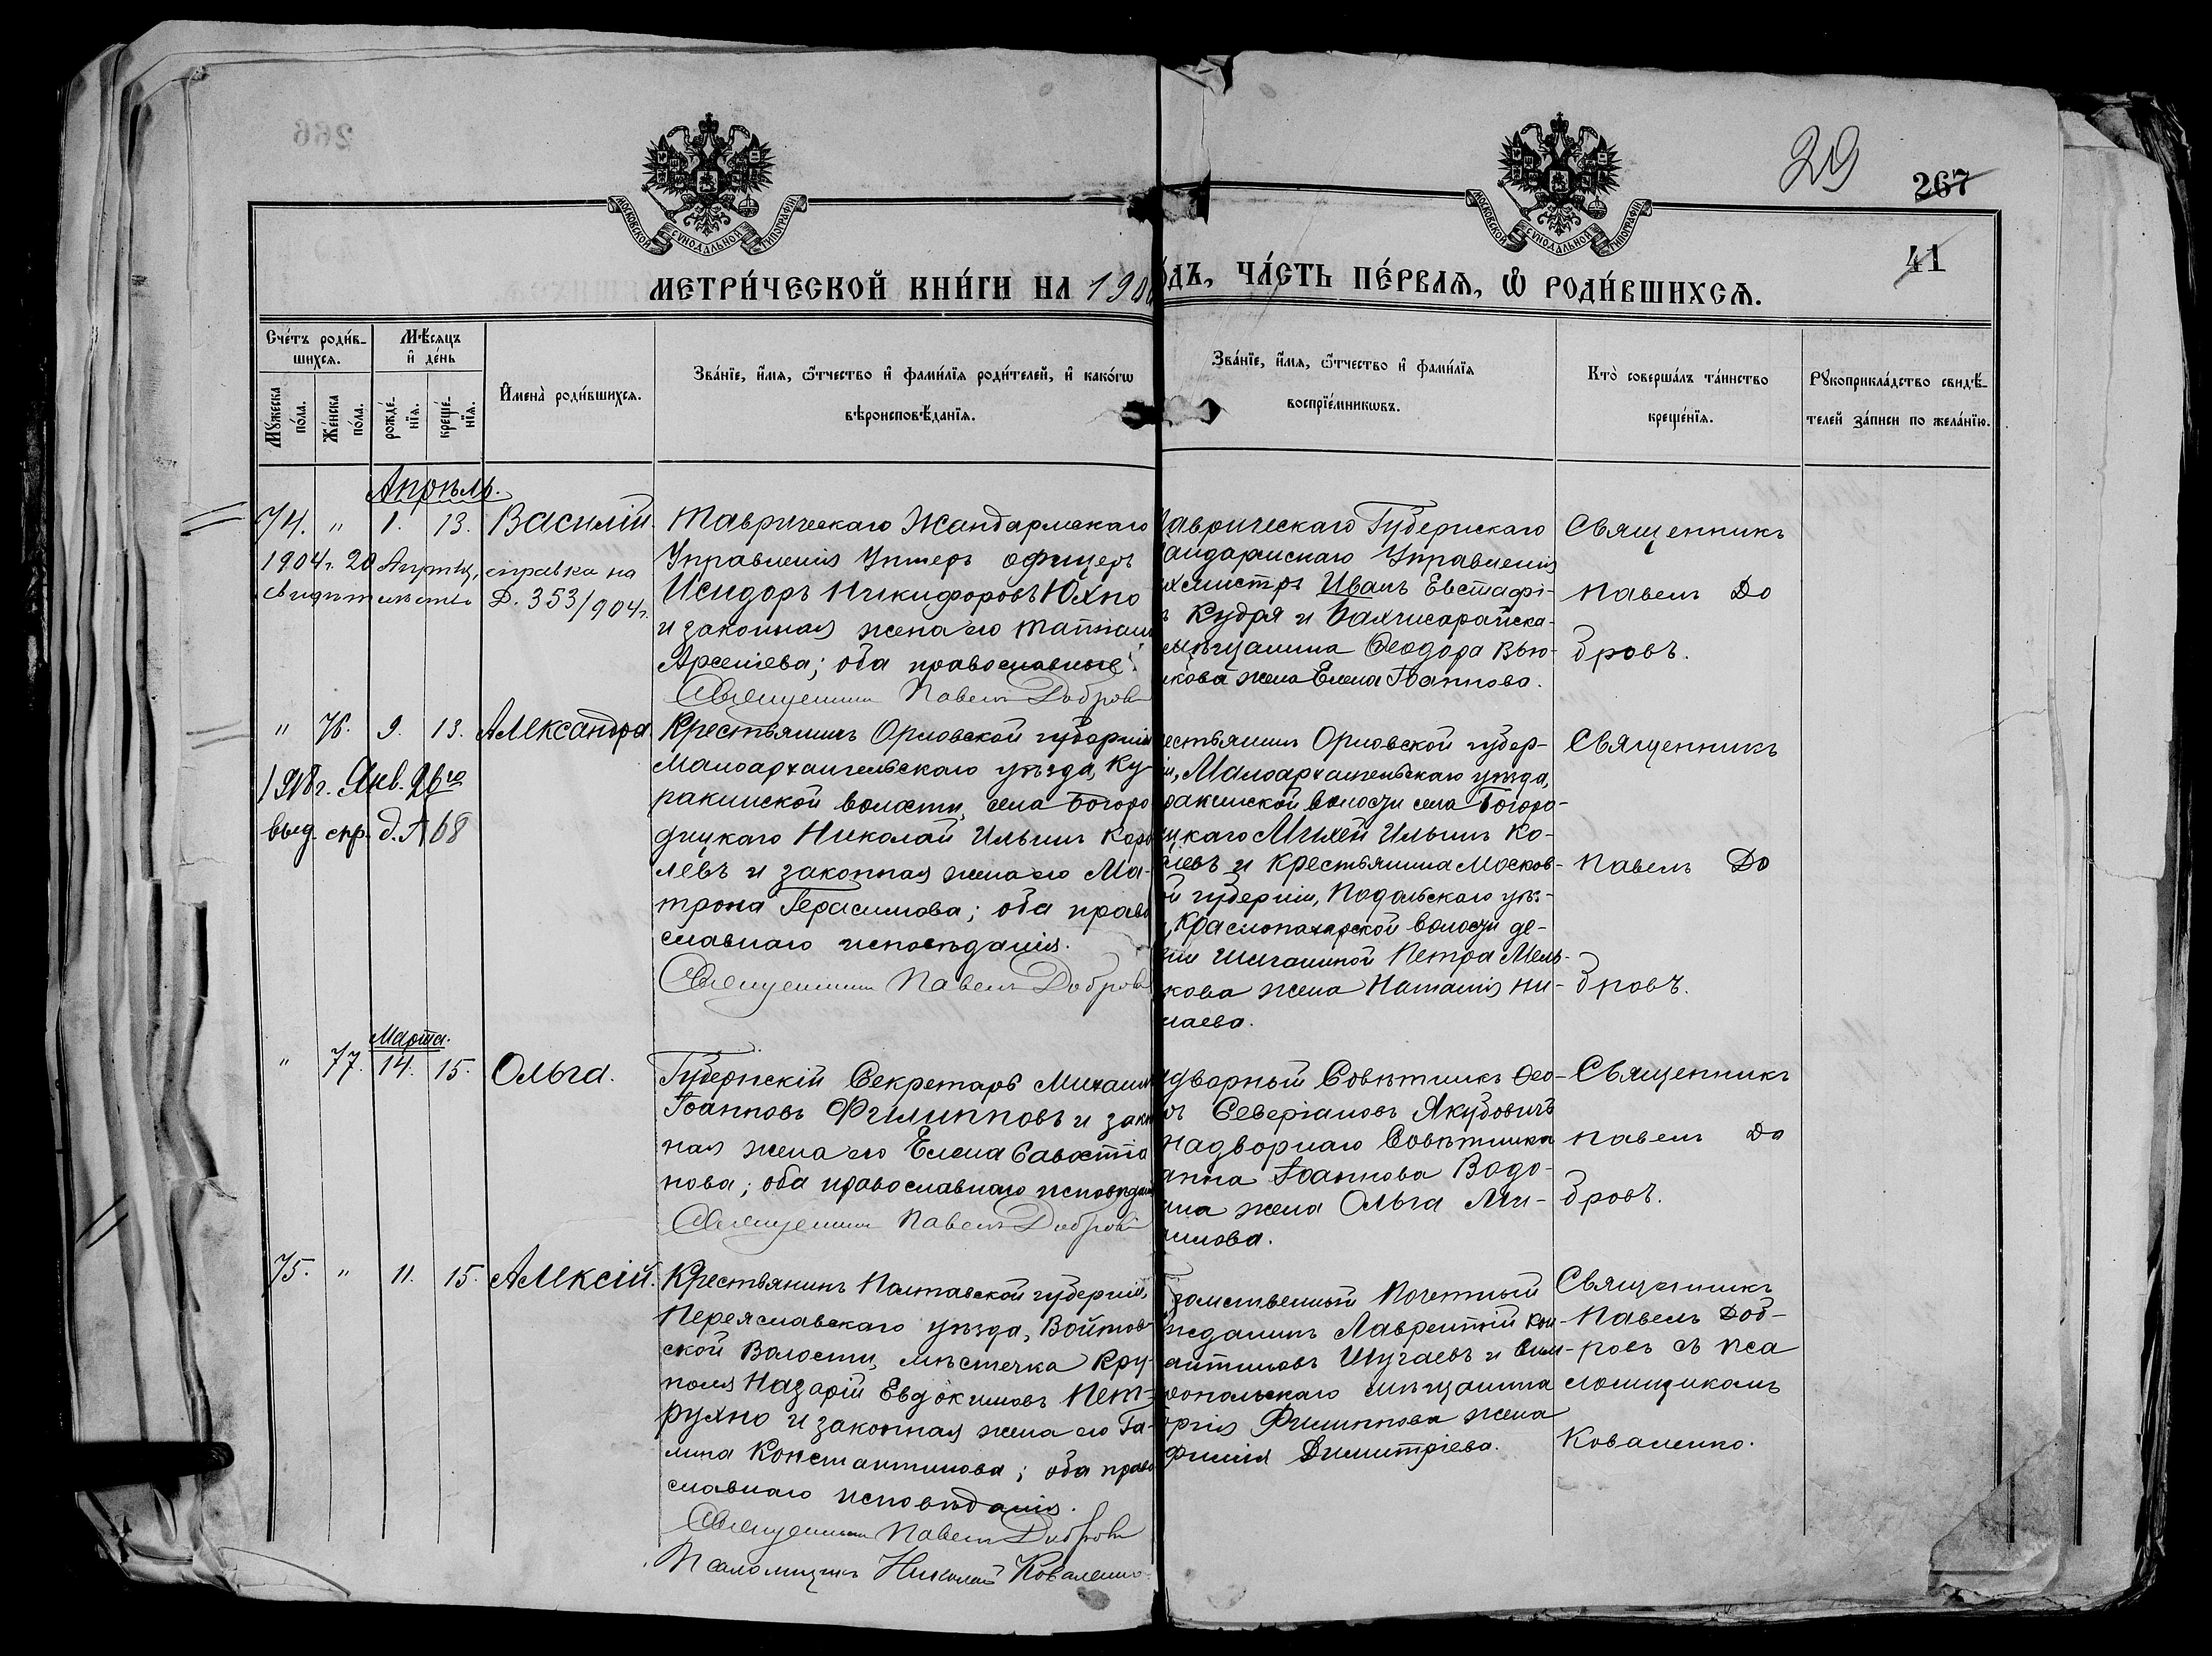 29
267
41
МОСКОВСКОЙ СѴНОДАЛЬНОЙ ТИПОГРАФІИ
МОСКОВСКОЙ СѴНОДАЛЬНОЙ ТИПОГРАФІИ
МЕТРИ́ЧЕСКОЙ КНИ́ГИ НА 190
ДЪ, ЧА́СТЬ ПЕ́РВАѦ, Ѡ҆ РОДИ́ВШИХСѦ.
Сче́тъ роди́в-
шихсѧ.
Мꙋ́жеска по́ла.
Же́нска по́ла.
Мѣ́сѧцъ
и҆ де́нь
рожде́-
нїѧ.
креще́-
нїѧ.
И҆мена̀ роди́вшихсѧ.
Зва́нїе, и҆́мѧ, ѻ҆́тчество и҆ фами́лїѧ роди́телей, и҆ како́гѡ
вѣроисповѣ́данїѧ.
Зва́нїе, и҆́мѧ, ѻ҆́тчество и҆ фами́лїѧ
воспрїе́мникѡвъ.
Кто̀ соверша́лъ та́инство
креще́нїѧ.
Рꙋкоприкла́дство свидѣ́-
телей за́писи по жела́нїю.
Апрѣль.
74. " 1. 13. Василій.
1904 г. 20 Апрѣля, справка на
свидѣтельство Д. 353/904 г.
Таврическаго Жандармскаго
Управленія Унтеръ офицеръ
Исидоръ Никифоровъ Юхно
и законная жена его Татіан
Арсеніева; оба православные.
Священникъ Павелъ Добровъ
аврическаго Губернскаго
андармскаго Управленія
хмистръ Иванъ Евстафі-
ъ Кудря и Бахчисарайска-
мѣщанина Ѳеодора Вью-
икова жена Елена Іоаннова.
Священникъ
Павелъ До
бровъ.
" 76. 9. 13. Александра
1918 г. Янв. 26го
выд. спр. д. № 68
Крестьянинъ Орловской губерніи
Малоархангельскаго уѣзда, Ку-
ракинской волости, села Богоро
дицкаго Николай Ильинъ Коро
лёвъ и законная жена его Ма-
трона Герасимова; оба право
славнаго исповѣданія.
Священникъ Павелъ Добровъ
естьянинъ Орловской губер-
іи, Малоархангельскаго уѣзда,
ракинской волости села Богоро-
ицкаго Михей Ильинъ Ко-
лёвъ и крестьянина Москов-
й губерніи, Подольскаго уѣз-
, Краснопахарской волости де-
ни Шиганиной Петра Мель-
кова жена Наталія Ни-
лаева.
Священникъ
Павелъ До
бровъ.
Марта.
" 77. 14. 15. Ольга.
Губернскій Секретарь Михаилъ
Іоанновъ Филипповъ и закон
ная жена его Елена Савастіа
нова; оба православнаго исповѣдані
Священникъ Павелъ Добровъ
дворный Совѣтникъ Ѳео-
ръ Северіановъ Якубовичъ
надворнаго Совѣтника
анна Іоаннова Водо-
ина жена Ольга Ми-
илова.
Священникъ
Павелъ До
бровъ.
75. " 11. 15. Алексій.
Крестьянинъ Полтавской губерніи,
Переяславскаго уѣзда, Войтов-
ской Волости, мѣстечка Кру-
поля Назарій Евдокимовъ Пет-
рухно и законная жена его Га-
лина Константинова; оба право
славнаго исповѣданія.
Священникъ Павелъ Добровъ
Псаломщикъ Николай Коваленко
томственный Почетный
жданинъ Лаврентій Кон-
антиновъ Шугаевъ и Сим-
ропольскаго мѣщанина
оргія Филиппова жена
фимія Димитріева.
Священникъ
Павелъ Доб-
ровъ съ пса
ломщикомъ
Коваленко.